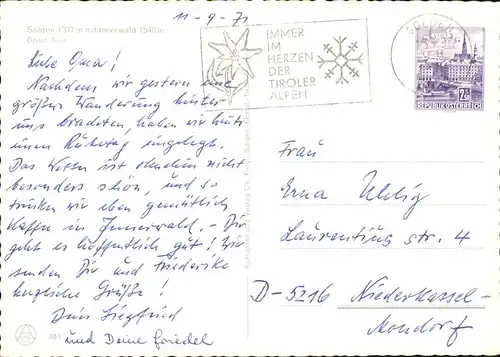 11-9-71
Sölden 1377 m mit Innerwald 1540 m
Ötztal, Tirol
IMMER
IM
HERZEN
DER
TIROLER
ALPEN
SÖLDEN
2.50
REPUBLIK ÖSTERREICH
Liebe Oma!
Nachdem wir gestern eine
größere Wanderung hinter
uns brachten, haben wir heute
einen Ruhetag eingelegt.
Das Wetter ist ohnehin nicht
besonders schön, und so
trinken wir eben gemütlich
Kaffee in Innerwald. - Dir
geht es hoffentlich gut! Wir
senden Dir und Friederike
herzliche Grüße!
Dein Siegfried
und Deine Friedel
Frau
Erna Uhlig
Laurentius str. 4
D-5216 Niederkassel-
Mondorf